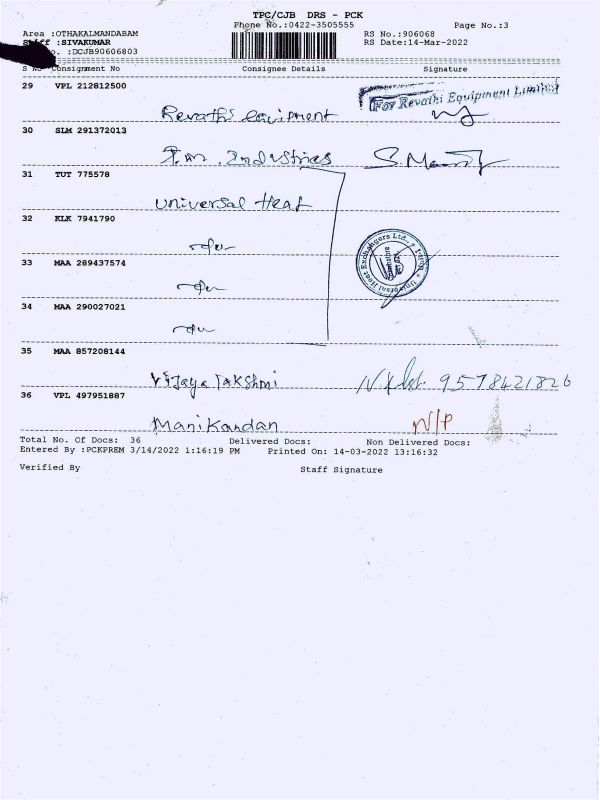 TPC/CJB DRS - PCK
Phone No.:0422-3505555 Page No.:3
Area :OTHAKALMANDABAM RS No.:906068
Staff :SIVAKUMAR RS Date:14-Mar-2022
No. :DCJB90606803
S No Consignment No Consignee Details Signature
29 VPL 212812500
For Revathi Equipment Limited
Revathi
30 SLM 291372013
Industries
31 TUT 775578
Universal Heat
32 KLK 7941790
Universal Heat Exchangers Ltd.,
33 MAA 289437574
34 MAA 290027021
35 MAA 857208144
Vijaya Lakshmi 9578421826
36 VPL 497951887
Manikandan N/P
Total No. Of Docs: 36 Delivered Docs: Non Delivered Docs:
Entered By :PCKPREM 3/14/2022 1:16:19 PM Printed On: 14-03-2022 13:16:32
Verified By Staff Signature